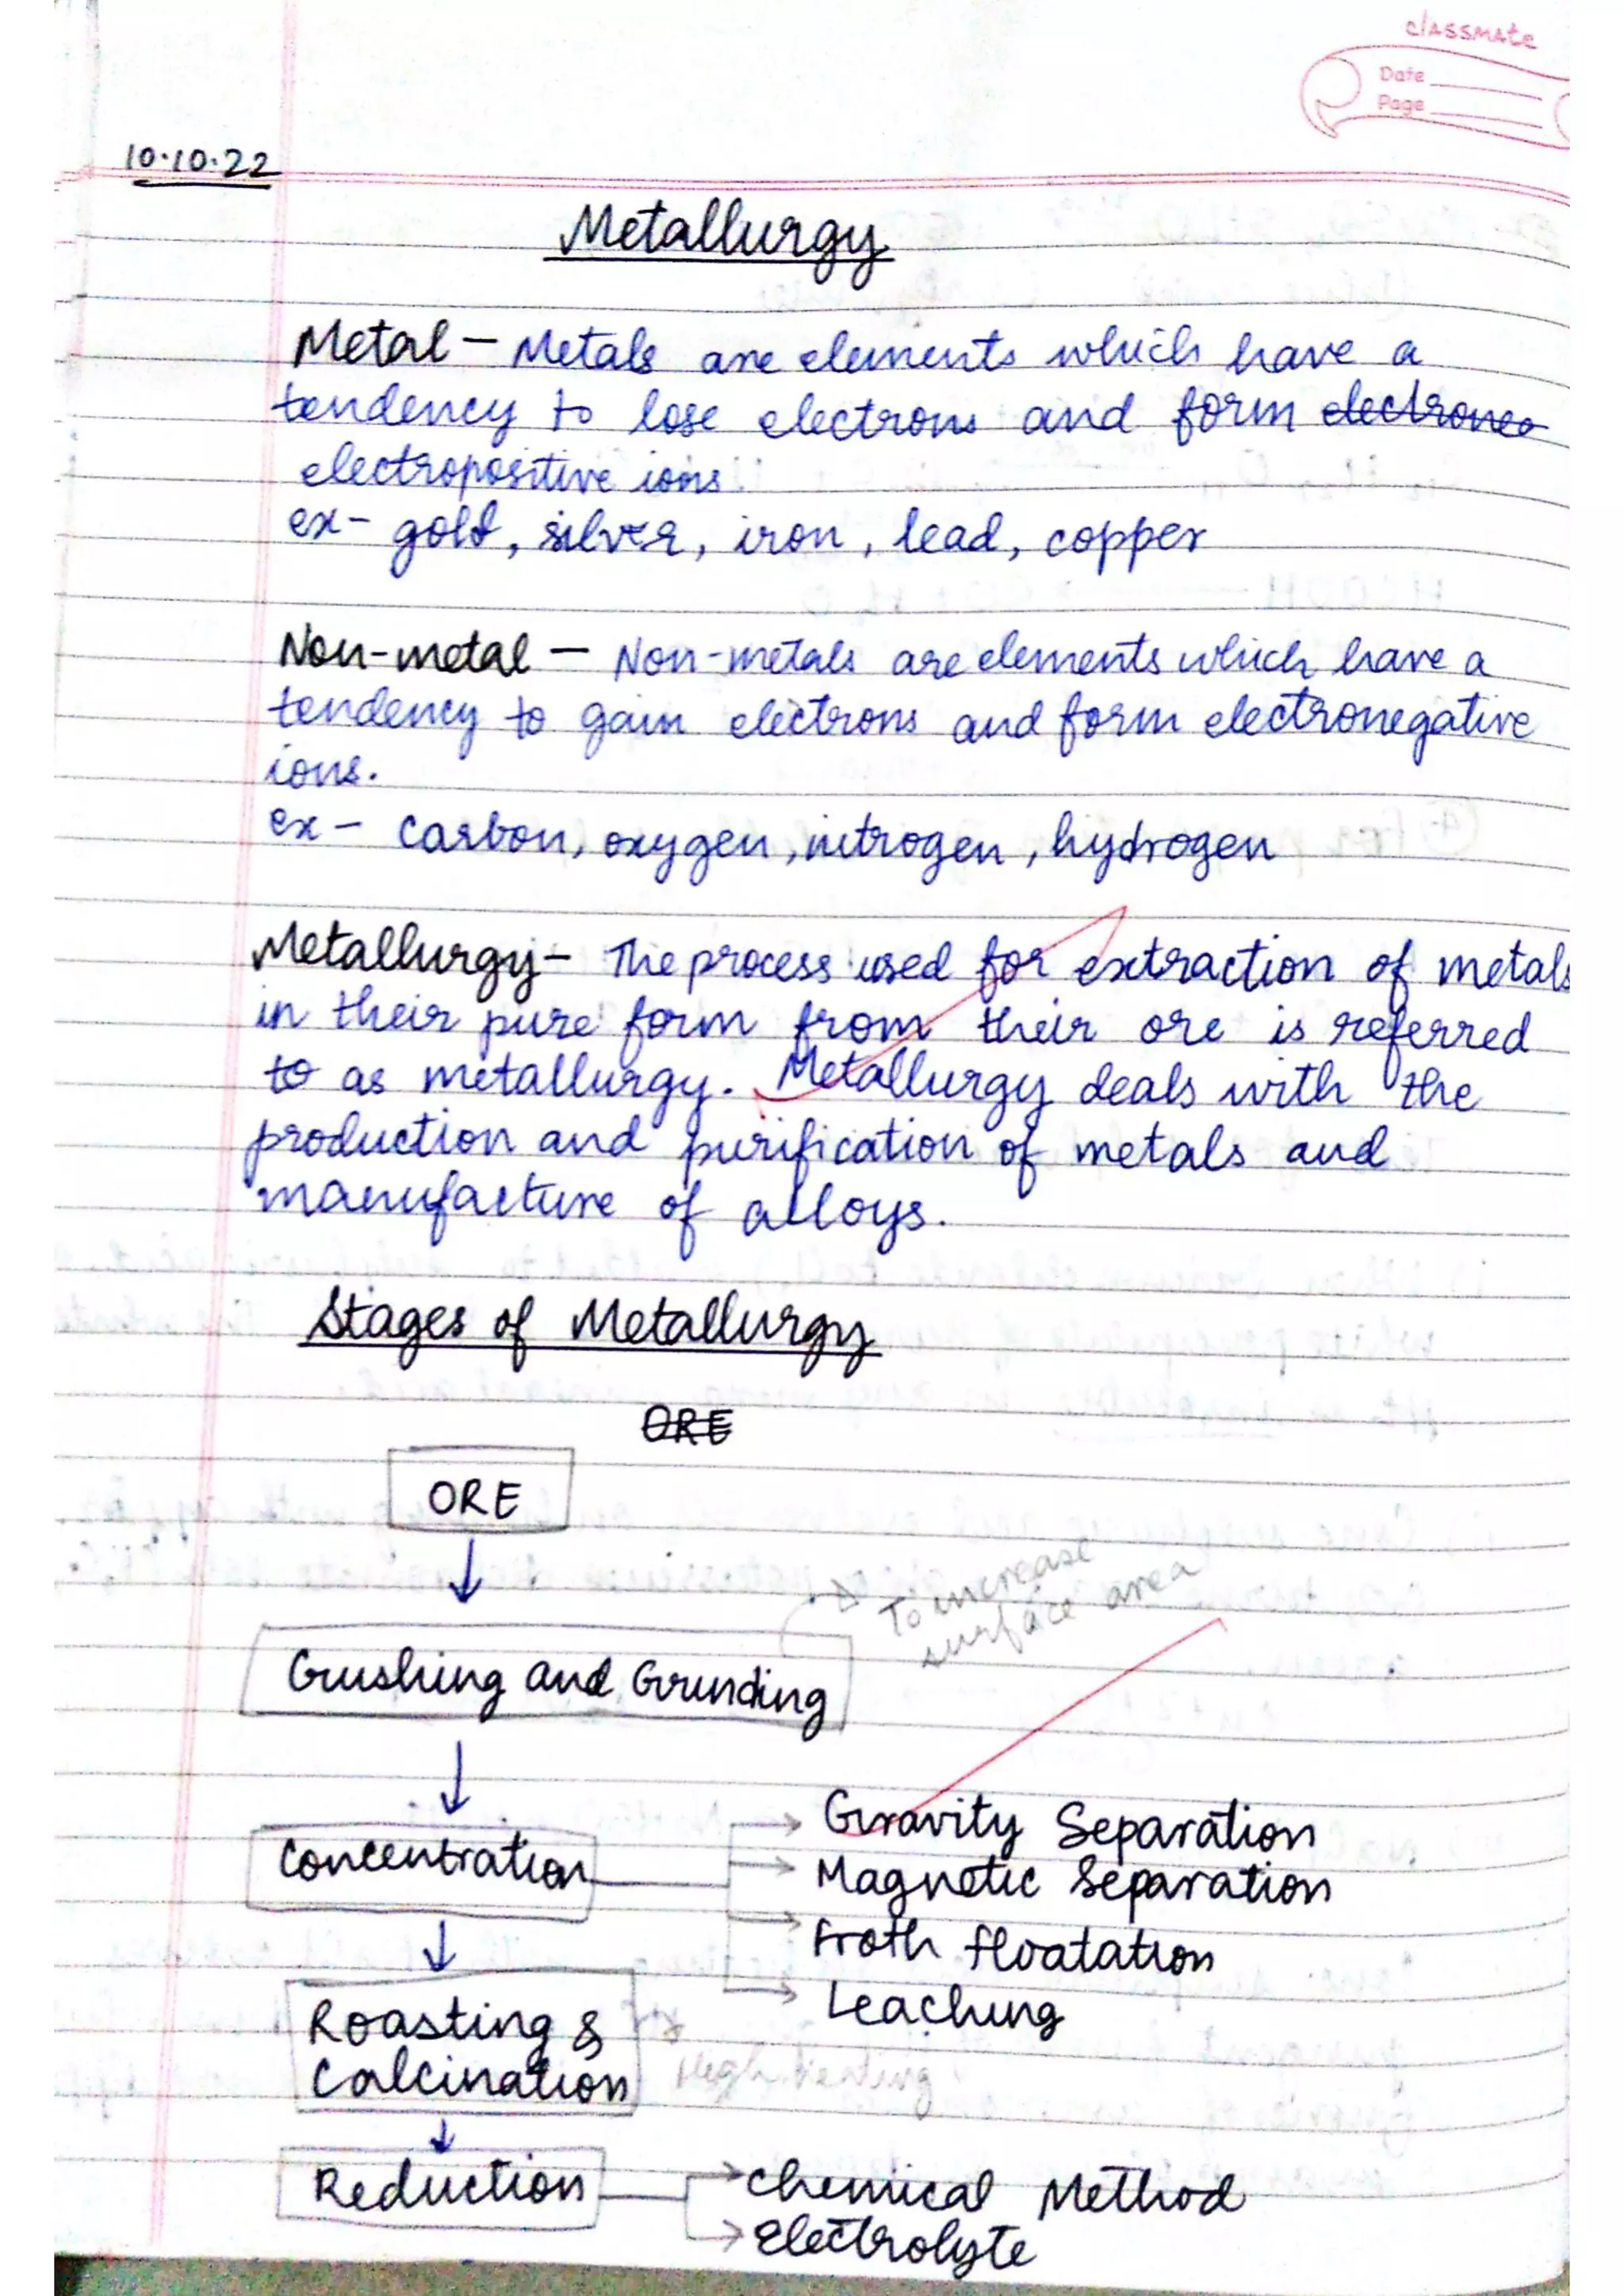 classmate
Date
Page
10.10.22
Metallurgy
Metal - Metals are elements which have a
tendency to lose electrons and form electrone
electropositive ions.
ex- gold, silver, iron, lead, copper
Non-metal - Non-metals are elements which have a
tendency to gain electrons and form electronegative
ions.
ex - carbon, oxygen, nitrogen, hydrogen
Metallurgy - The process used for extraction of metals
in their pure form from their ore is referred
to as metallurgy. Metallurgy deals with the
production and purification of metals and
manufacture of alloys.
Stages of Metallurgy
ORE
ORE
To increase
surface area
Crushing and Grinding
Gravity Separation
Concentration
Magnetic Separation
Froth floatation
Leaching
Roasting &
Calcination
High heating
Reduction
Chemical Method
Electrolyte